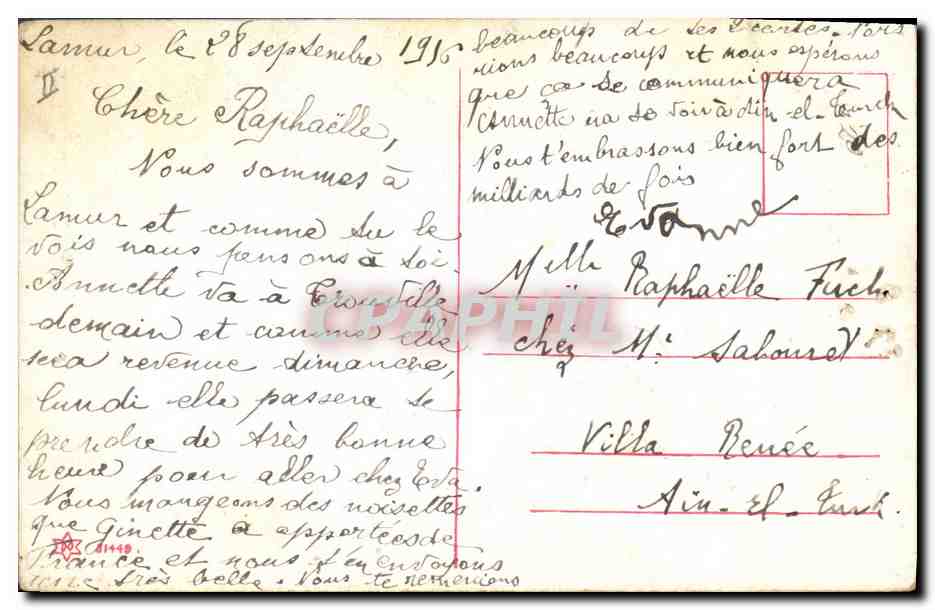 Lamur, le 28 septembre 1916
II
Chère Raphaëlle,
Nous sommes à
Lamur et comme tu le
vois nous pensons à toi.
Annette va à Trouville
demain et comme elle
sera revenue dimanche,
lundi elle passera te
prendre de très bonne
heure pour aller chez Eva.
Nous mangeons des noisettes
que Ginette a apportées de
France et nous t'en envoyons
une très belle. Nous te remercions
81449
beaucoup de tes 2 cartes. Nous
rions beaucoup et nous espérons
que ça se communiquera
Annette va se voir à Ain-el-Turck
Nous t'embrassons bien fort des
milliards de fois
Evanne
Melle Raphaëlle Fuch
chez Mr Sabouret
Villa Renée
Ain-el-Turck.
CPAPHIL